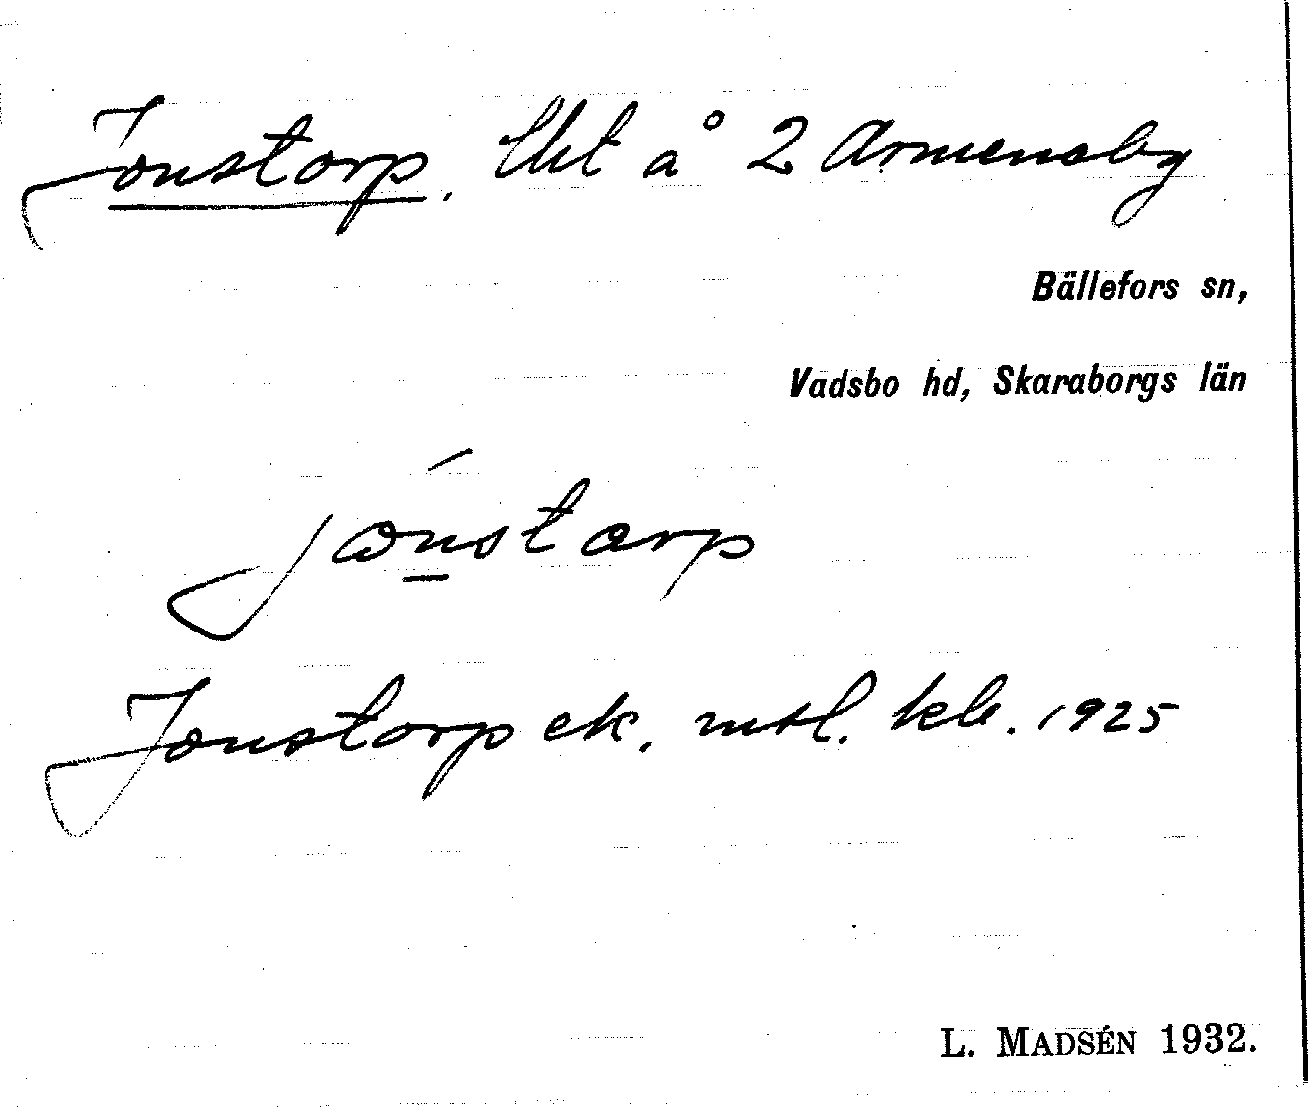 Jonstorp. Utet å 2 Armensby
Bällefors sn,
Vadsbo hd, Skaraborgs län
jo̱nstorp
Jonstorp ek. mtl. kb. 1925
L. MADSÉN 1932.